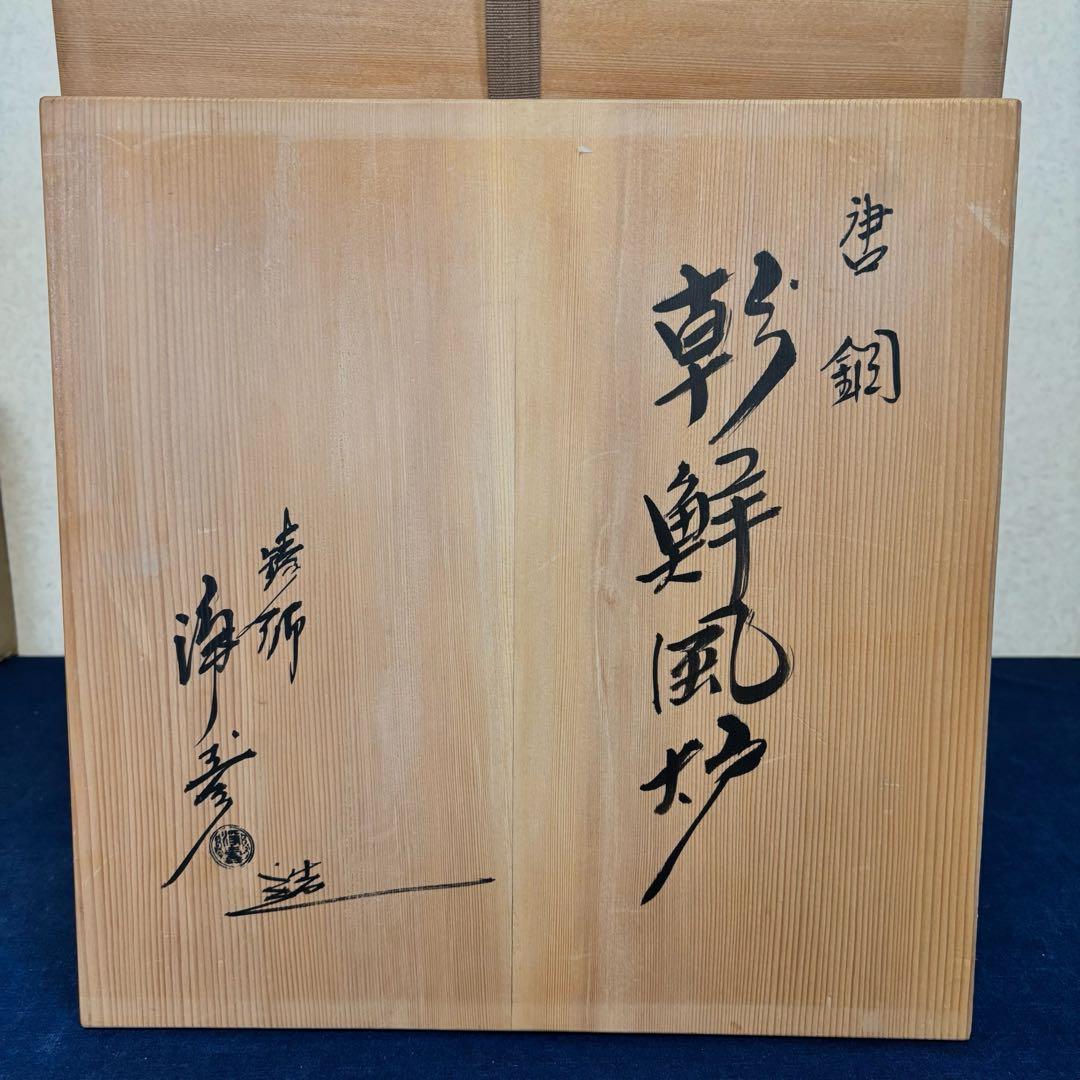 唐銅
朝鮮風炉
鋳師
浄
造